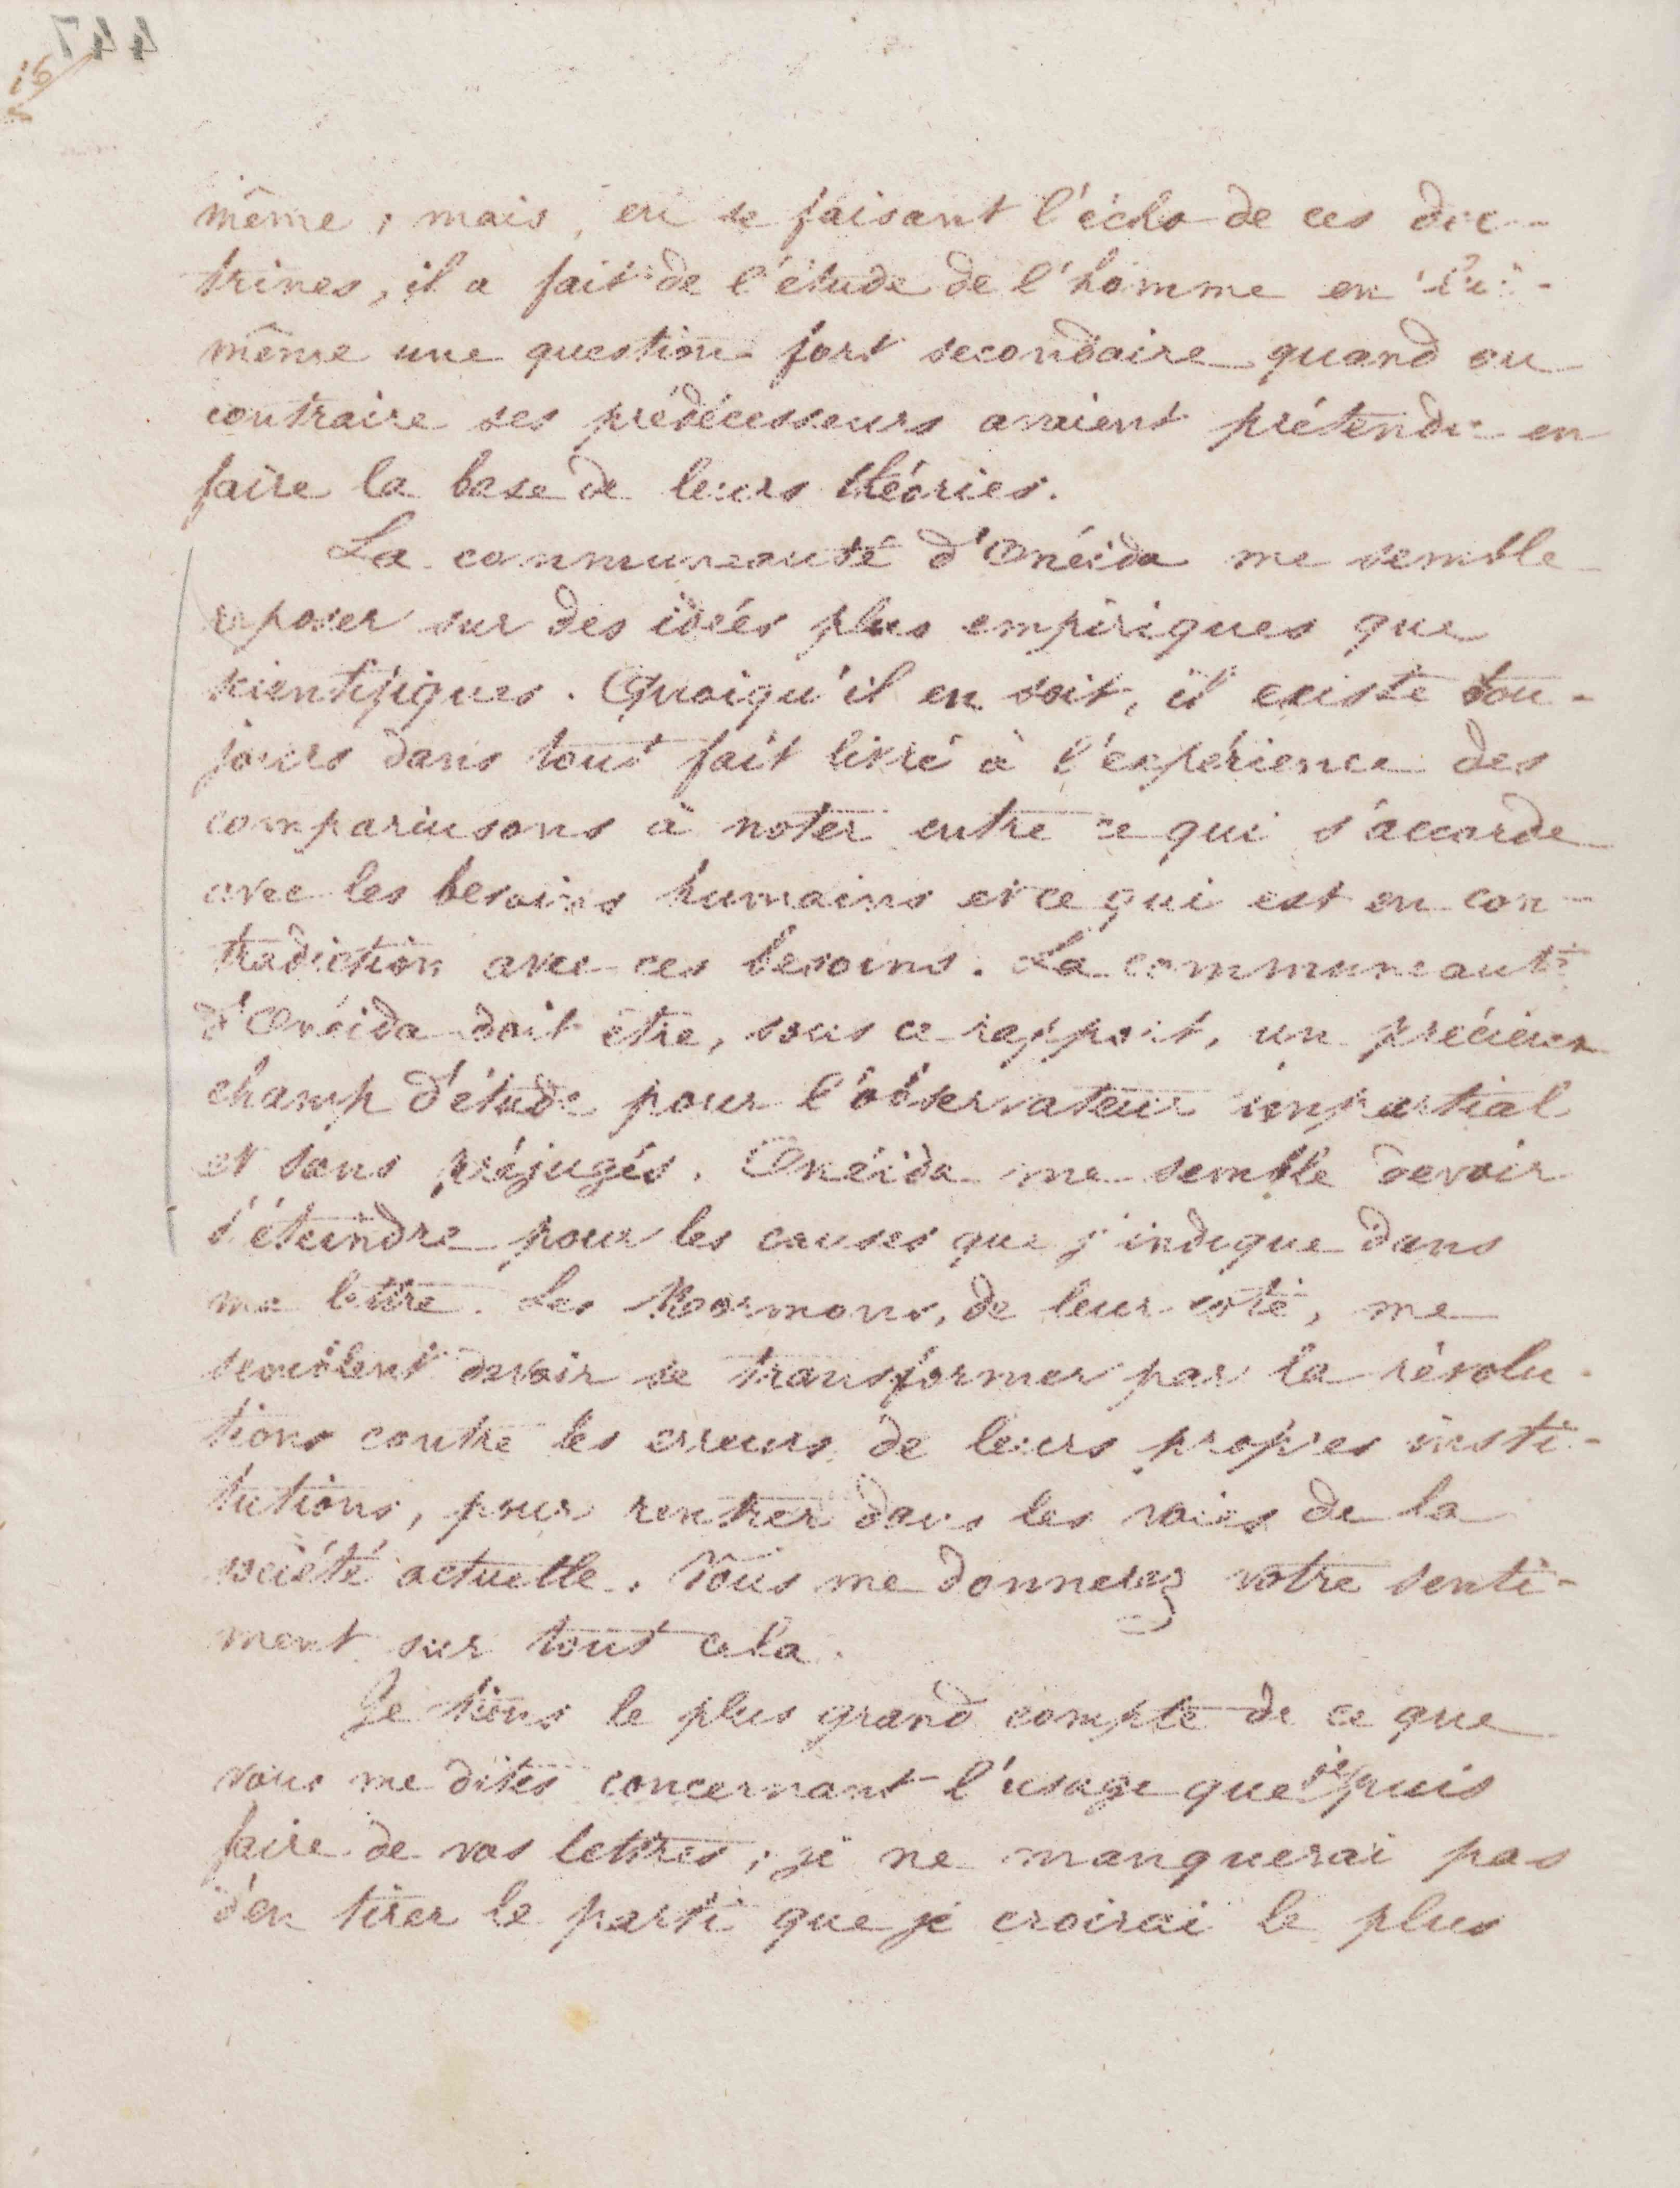 447
même, mais, en se faisant l'écho de ces doc-
trines, il a fait de l'étude de l'homme en lui-
même une question fort secondaire quand au
contraire ses prédécesseurs avaient prétendu en
faire la base de leurs théories.
La communauté d'Onéida me semble
reposer sur des idées plus empiriques que
scientifiques. Quoiqu'il en soit, il existe tou-
jours dans tout fait livré à l'expérience des
comparaisons à noter entre ce qui s'accorde
avec les besoins humains et ce qui est en con-
tradiction avec ces besoins. La communauté
d'Onéida doit être, sous ce rapport, un précieux
champ d'étude pour l'observateur impartial
et sans préjugés. Onéida me semble devoir
s'éteindre pour les causes que j'indique dans
ma lettre. Les Mormons, de leur côté, me
semblent devoir se transformer par la révolu-
tions contre les erreurs de leurs propres insti-
tutions, pour rentrer dans les voies de la
société actuelle. Vous me donnerez votre senti-
ment sur tout cela.
Je tiens le plus grand compte de ce que
vous me dites concernant l'usage que je puis
faire de vos lettres, je ne manquerai pas
d'en tirer le parti que je croirai le plus